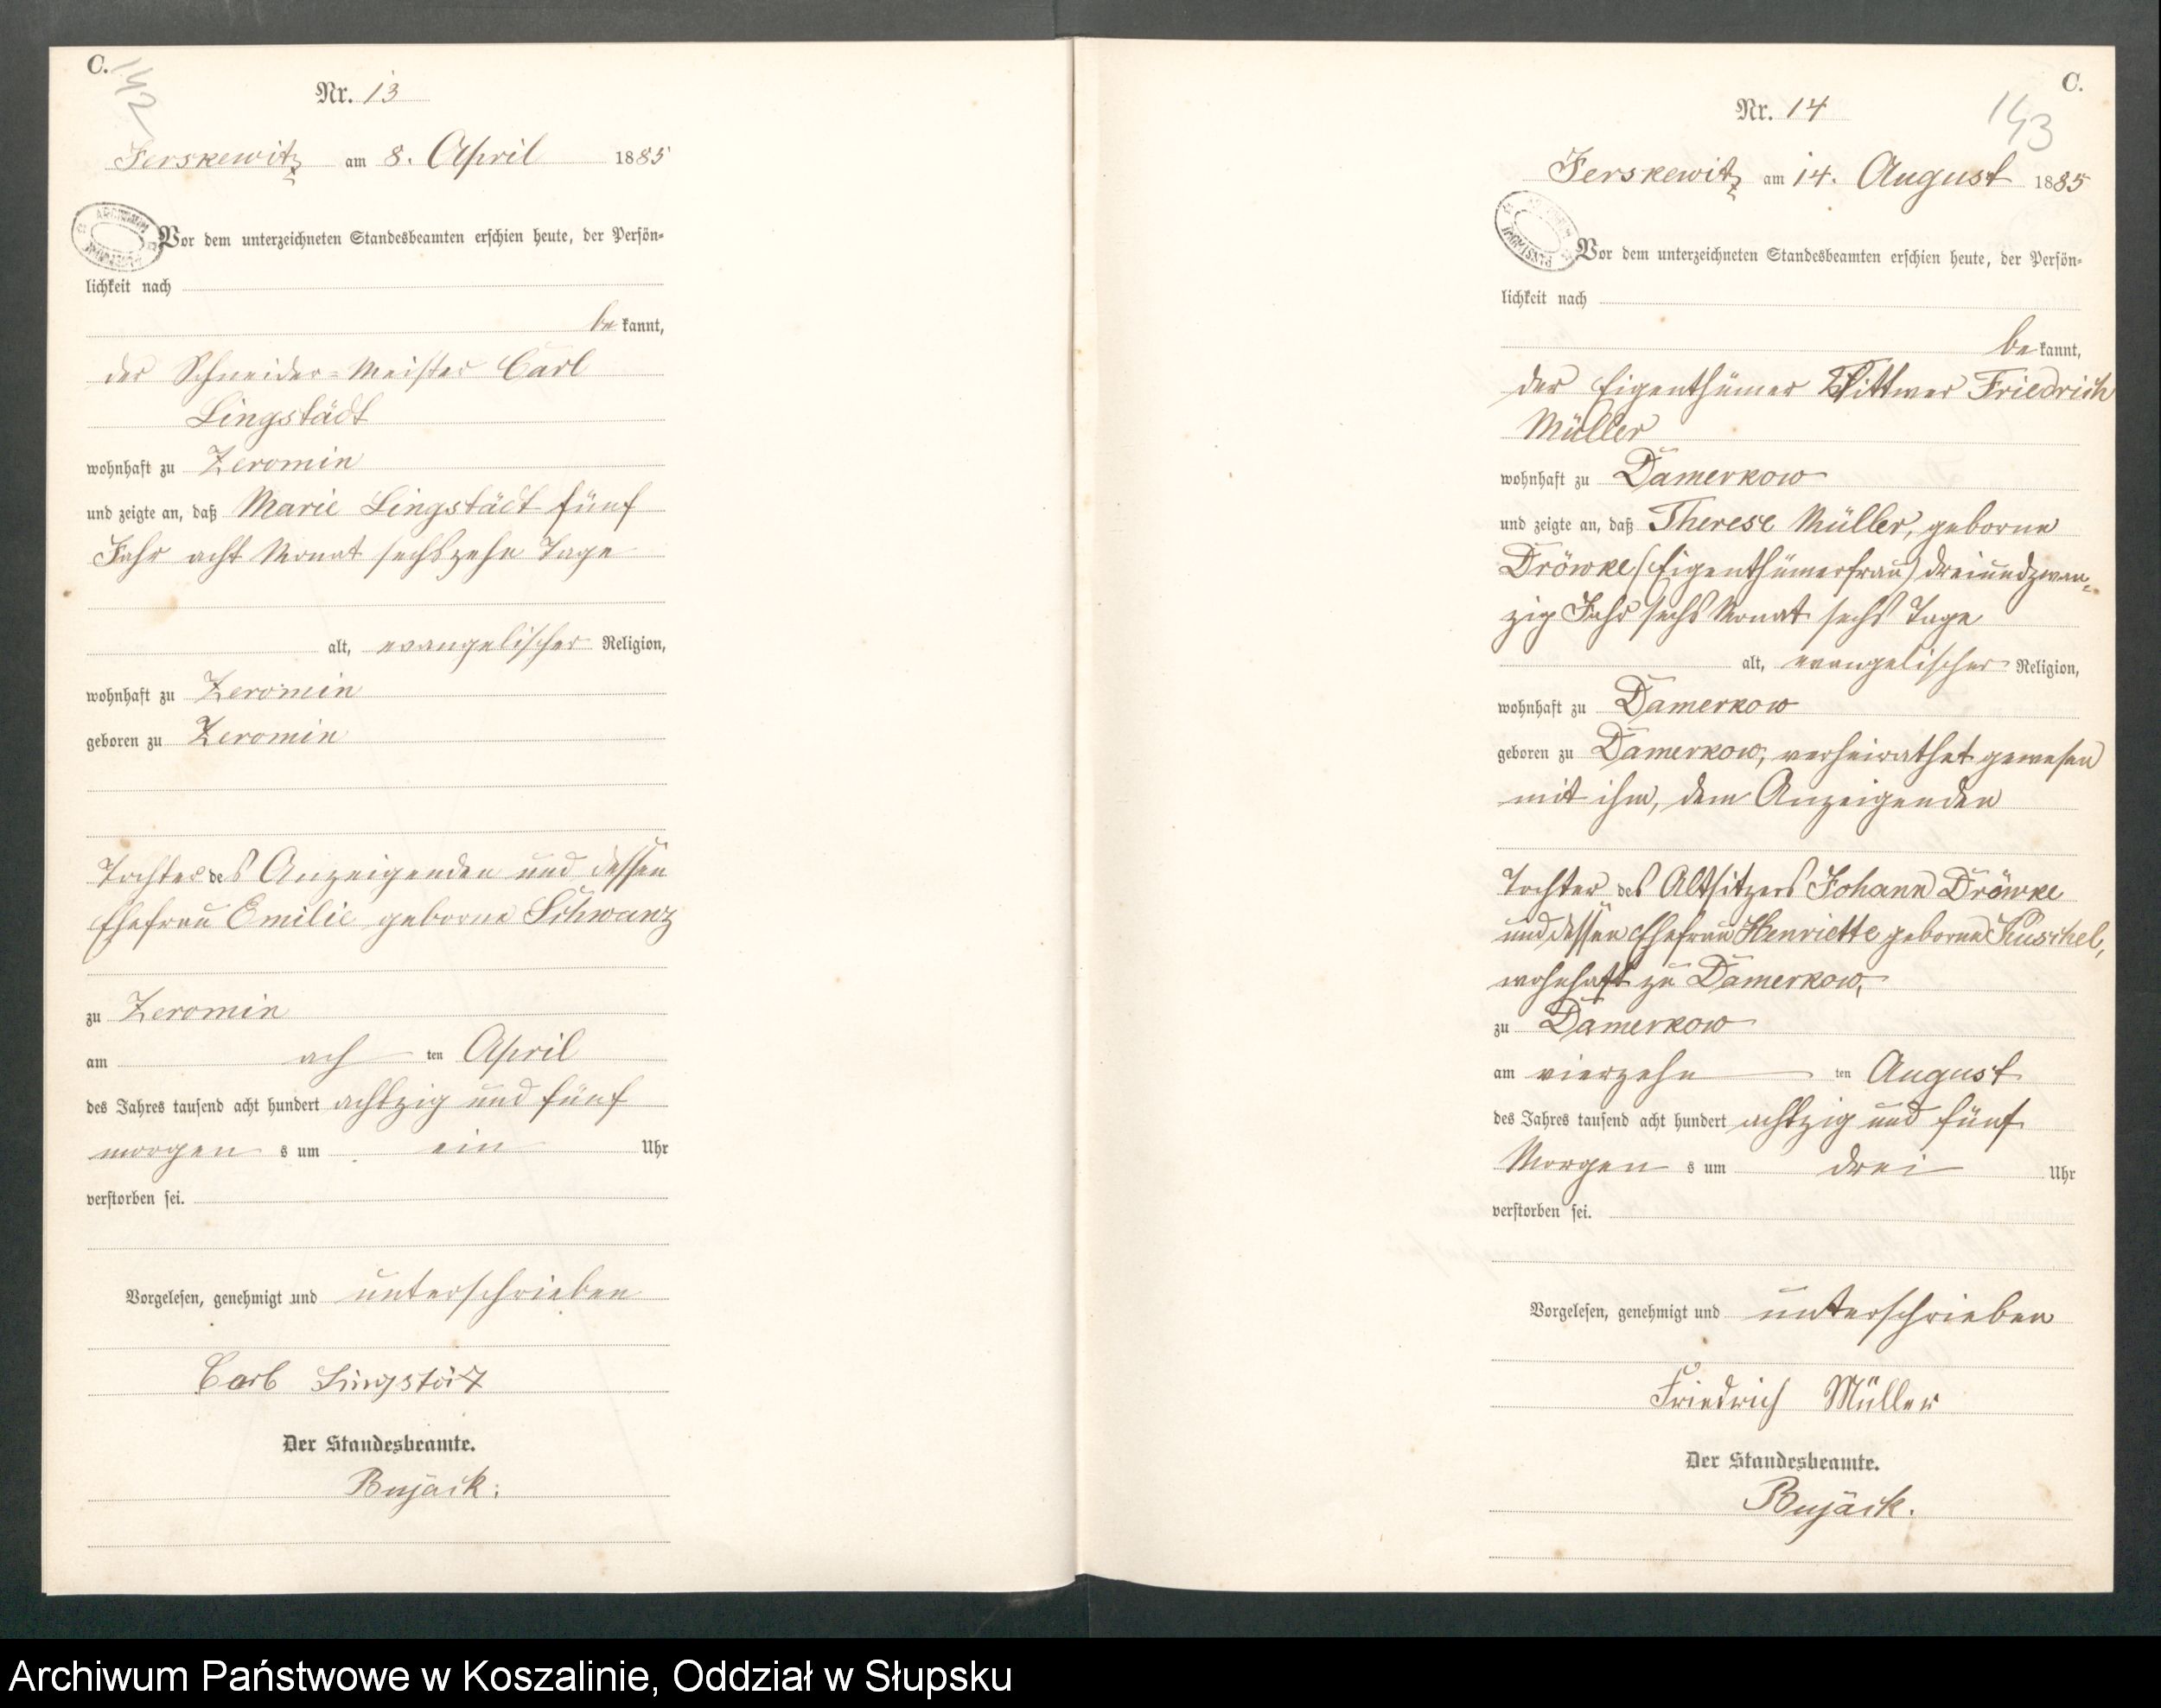 C.
142
Nr. 13
Jerskewitz am 8. April 1885
Vor dem unterzeichneten Standesbeamten erschien heute, der Persön-
lichkeit nach
be kannt,
der Schneider-Meister Carl
Lingstädt
wohnhaft zu Zeromin
und zeigte an, daß Marie Lingstädt fünf
Jahr acht Monat sechszehn Tage
alt, evangelischer Religion,
wohnhaft zu Zeromin
geboren zu Zeromin
Tochter des Anzeigenden und dessen
Ehefrau Emilie geborne Schwanz
zu Zeromin
am ach ten April
des Jahres tausend acht hundert achtzig und fünf
morgen s um ein Uhr
verstorben sei.
Vorgelesen, genehmigt und unterschrieben
Carl Lingstät
Der Standesbeamte.
Bujäck.
C.
143
Nr. 14
Jerskewitz am 14. August 1885
ARCHIWUM PAŃSTWOWE
Vor dem unterzeichneten Standesbeamten erschien heute, der Persön-
lichkeit nach
be kannt,
der Eigenthümer Wittwer Friedrich
Müller
wohnhaft zu Damerkow
und zeigte an, daß Therese Müller, geborne
Dröwke (Eigenthümerfrau) dreiundzwan-
zig Jahr sechs Monat sechs Tage
alt, evangelischer Religion,
wohnhaft zu Damerkow
geboren zu Damerkow, verheirathet gewesen
mit ihm, dem Anzeigenden
Tochter des Altsitzers Johann Dröwke
und dessen Ehefrau Henriette geborne Kuschel,
wohnhaft zu Damerkow,
zu Damerkow
am vierzehn ten August
des Jahres tausend acht hundert achtzig und fünf
Morgen s um drei Uhr
verstorben sei.
Vorgelesen, genehmigt und unterschrieben
Friedrich Müller
Der Standesbeamte.
Bujäck.
Archiwum Państwowe w Koszalinie, Oddział w Słupsku